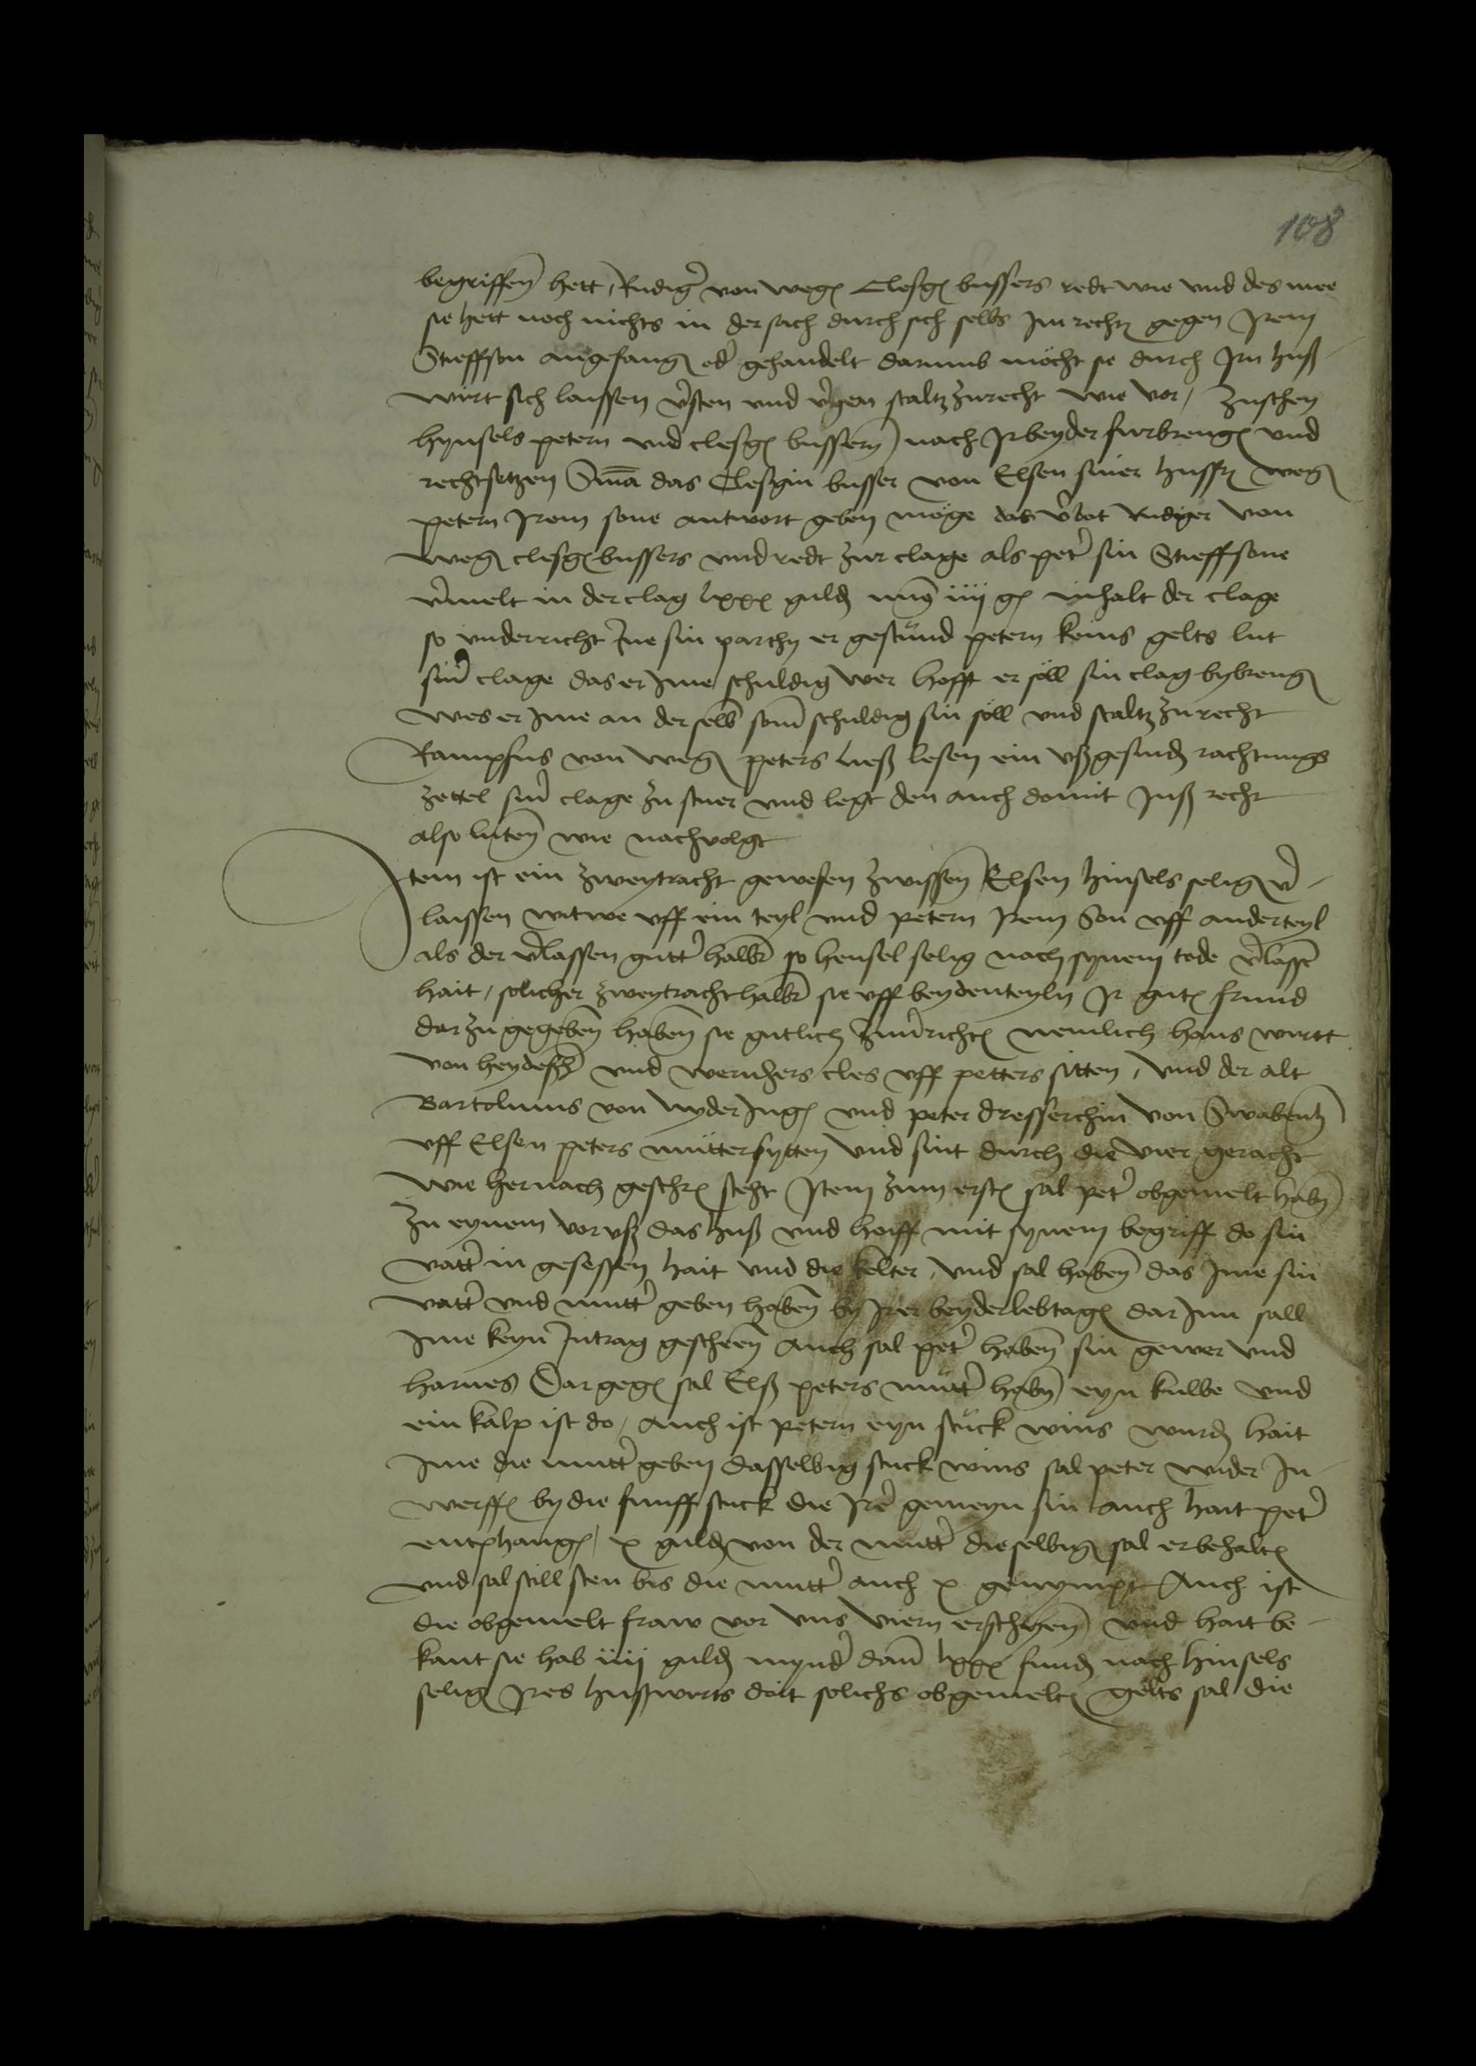 108
begriffen hett, Rudiger von wegen Clesgen bussers redt wie und des mee
sie hett noch nichts in der sach durch sich selbs Im rechten gegen Irem
Stieffson angefangen oder gehandelt darumb möcht sie durch Irn huß
wirt sich laissen v'sten und v'gen stalts zurecht wie vor / zuschen
hynsels petern und clesgen bussern nach Ir beyder furbrengen und
rechtsetzen Sma das Clesgin busser von Elsen siner hussfr wegen
petern Irem sone antwort geben moge das v'bot Rudiger von
wegen clesgen bussers und redt zur clage als peter sin Stieffsone
v'melt in der clag lxxx gulden mins iiij gl inhalt der clage
so underricht Ine sin parthy er gestund petern keins gelts lut
siner clage das er Ime schuldig wer hofft er söll sin clag bybrengen
wes er Ime an derselben som schuldig sin söll und stalts zurecht
Rampfus von wegen peters ließ lesen ein ußgesnden rachtungs
zettel siner clage zu stuer und legt den auch domit Inß recht
also luten wie nachvolgt
Item ist ein zweytracht gewesen zwissen Elsen hinsels seligen v'
laissen witwe uff ein teyl und petern Irem Son uff anderteyl
als der v'lassen gutter halber so hensel selig nach synem tode v'lassen
hait, solicher zweytracht halber sie uff beydenteyln Ir guten frund
dar zu gegeben haben sie gutlich zuv'richten nemlich hans wirtt
von heydeßh und wernhers cles uff petters sitten, und der alt
Bartolmus von nyder Ingeln und peter dresserchin von Swabenh
uff Elsen peters muttersytten und sint durch die vier geracht
wie hernach geschrn steht Item zum ersten sal peter obgemelt haben
zu eynem vor uß das huß und hoiff mit synem begriff do sin
vatter in gesessen hait und die kelter, und sal haben das Ime sin
vatter und mutter geben haben by Irer beyder lebtagen dar Inn sall
Ime keyn Intrag gescheen auch sal peter haben sin gewer und
harnes Dar gegen sal Elß peters mutter haben eyn kulbe und
ein kalp ist do, auch ist petern eyn stuck wins wurden hait
Ime die mutter geben dasselbig stuck wins sal peter wider In
werffen by die funff stuck die Ire gemeyn sin auch hait peter
entphangen x gulden von der mutter dieselbigen sal er behalten
und sal still sten bis die mutter auch x genympt Auch ist
die obgemelt fraw vor uns viern erschyen und hait be
kant sie hab iiij gulden mynder dan lxxx funden nach hinsels
seligen Ires hußwirts doit solichs obgemelten gelts sal die